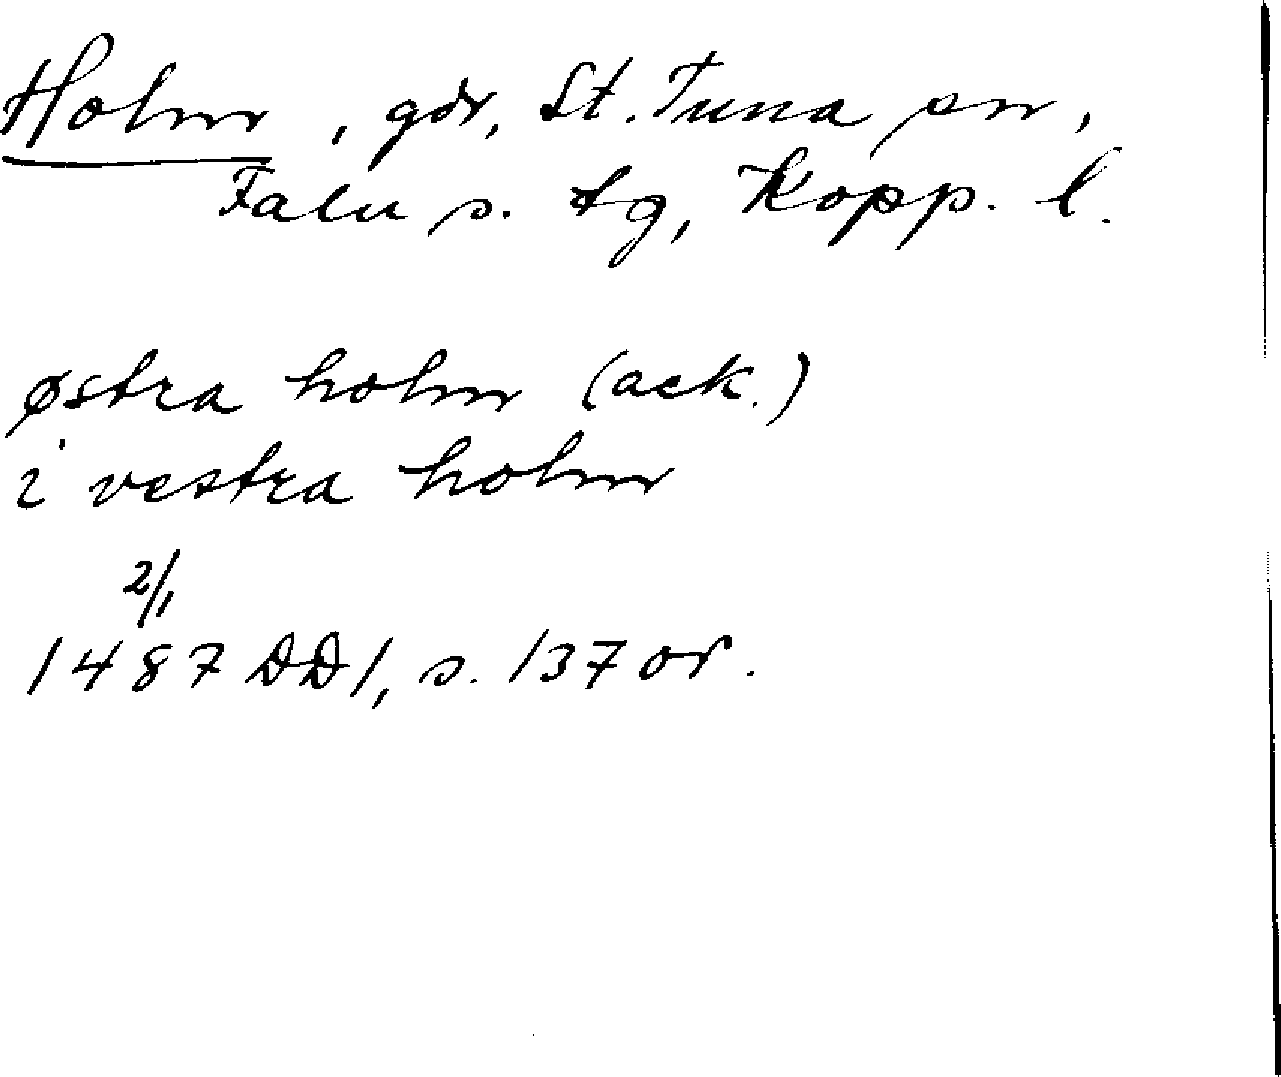 Holm, gdr, St. Tuna sn,
Falu s. tg, Kopp. l.
østra holm (ack.)
i vestra holm
2/1
1487 DD1, s. 137 or.